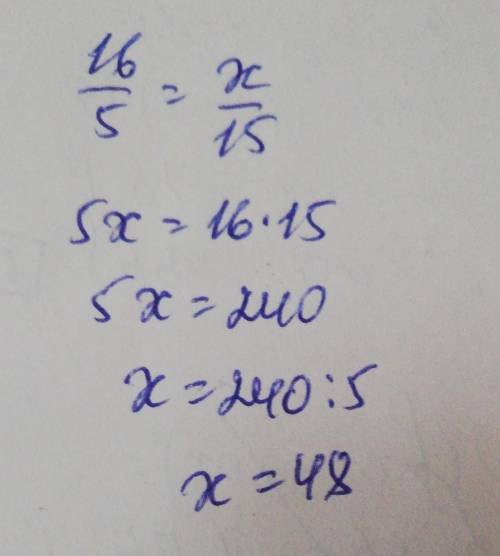 16/5 = x/15
5x = 16·15
5x = 240
x = 240:5
x = 48